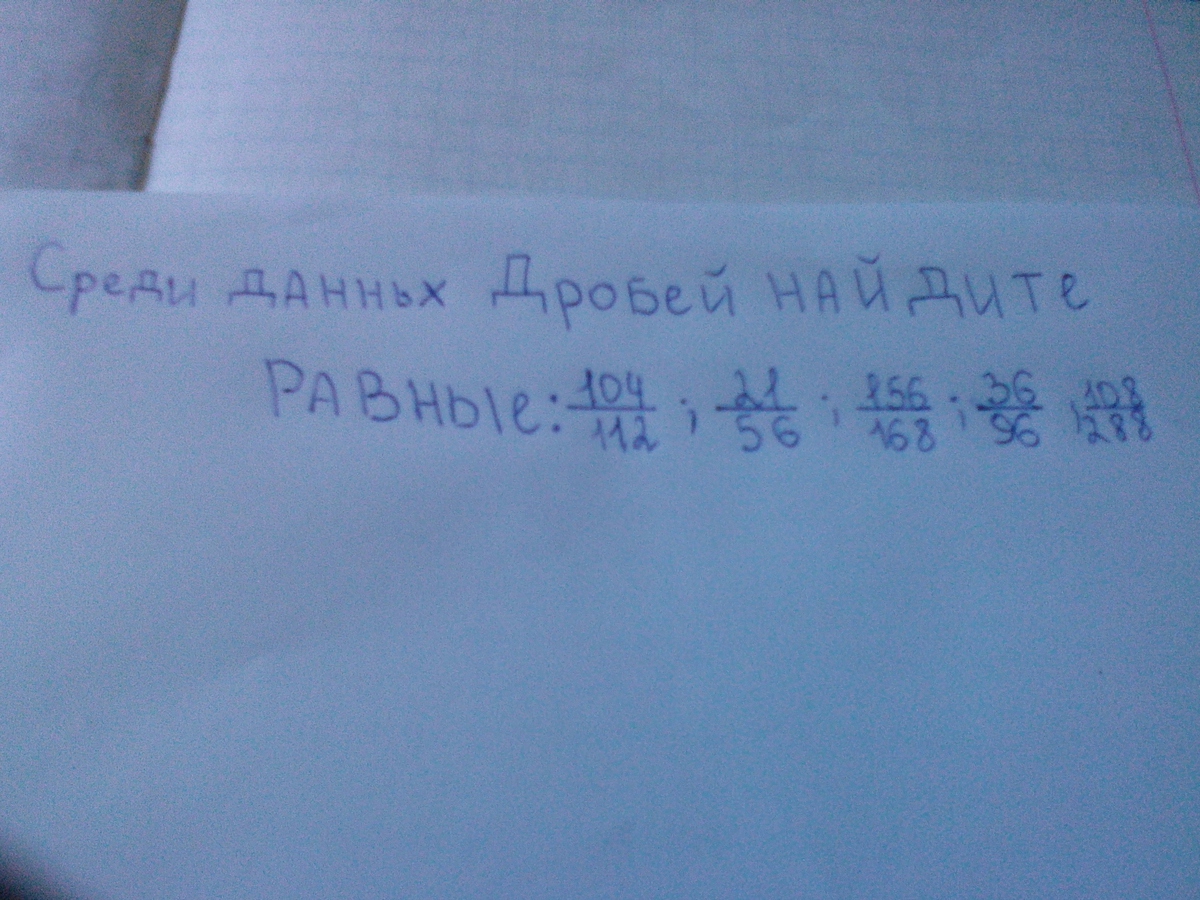 Среди данных Дробей найдите
РАВНЫЕ: 104/112 ; 21/56 ; 156/168 ; 36/96 , 108/288